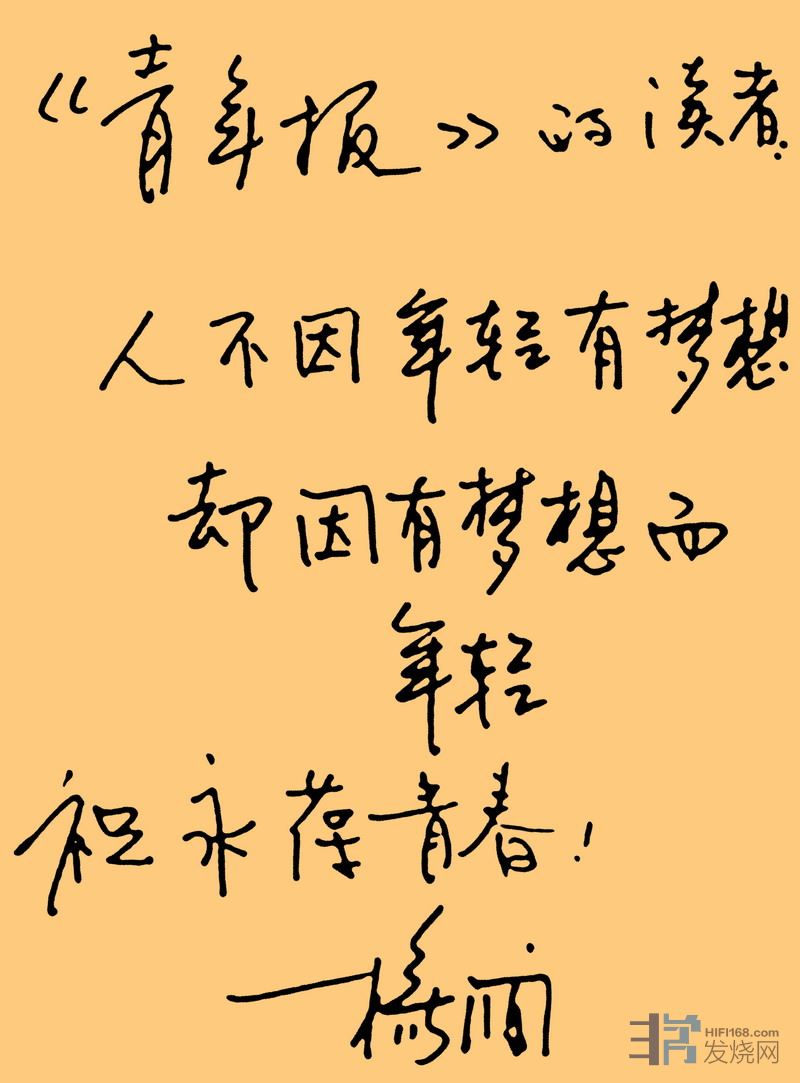 《青年报》的读者:
人不因年轻有梦想
却因有梦想而
年轻
祝永葆青春!
杨澜
HIFI168.com
发烧网